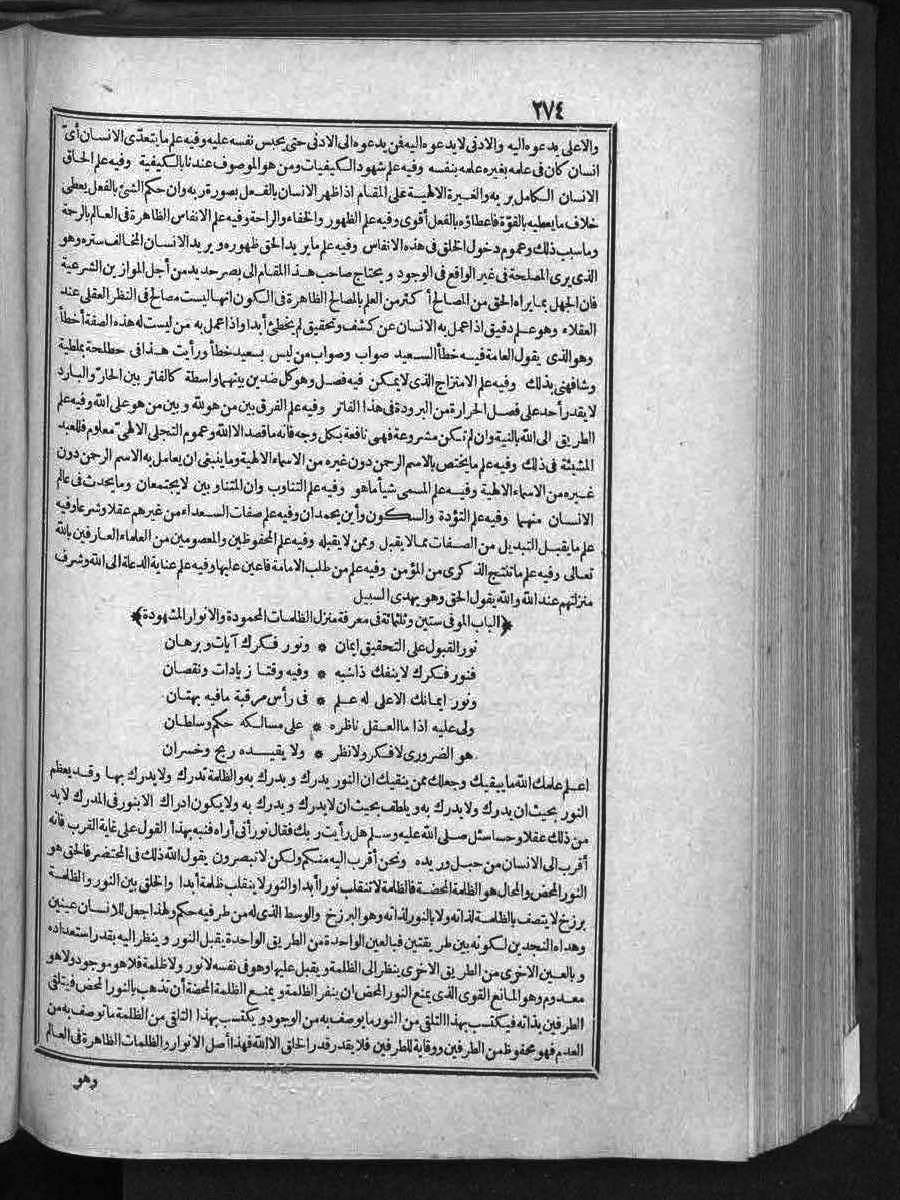 ٢٧٤
والاعلى يدعوه اليه والادنى لا يدعوه اليه فمن يدعوه الى الادنى حتى يحبس نفسه عليه وفيه علم ما يتعدّى الانسان أىّ
انسان كان فى علمه بغيره علمه بنفسه وفيه علم شهود الكيفيات ومن هو الموصوف عندنا بالكيفية وفيه علم الحاق
الانسان الكامل بربه والغيرة الالهية على المقام اذا ظهر الانسان بالفعل بصورة ربه وان حكم الشئ بالفعل يعطى
خلاف ما يعطيه بالقوّة فاعطاؤه بالفعل أقوى وفيه علم الظهور والخفاء والراحة وفيه علم الانفاس الظاهرة فى العالم بالرحة
وما سبب ذلك وعموم دخول الخلق فى هذه الانفاس وفيه علم ما يريد الحق ظهوره ويريد الانسان المخالف ستره وهو
الذى يرى المصلحة فى غير الواقع فى الوجود ويحتاج صاحب هذا المقام الى بصر حديد من أجل الموازين الشرعية
فان الجهل بما يراه الحق من المصالح أكثر من العلم بالمصالح الظاهرة فى الكون انها ليست مصالح فى النظر العقلى عند
العقلاء وهو علم دقيق اذا عمل به الانسان عن كشف وتحقيق لم يخطئ أبدا واذا عمل به من ليست له هذه الصفة أخطأ
وهو الذى يقول العامة فيه خطأ السعيد صواب وصواب من ليس بسعيد خطأ ورأيت هذا فى حطلحة بملطية
وشافهنى بذلك وفيه علم الامتزاج الذى لا يمكن فيه فصل وهو كل ضدين بينهما واسطة كالفاتر بين الحارّ والبارد
لا يقدر أحد على فصل الحرارة من البرودة فى هذا الفاتر وفيه علم الفرق بين من هو لله وبين من هو على الله وفيه علم
الطريق الى الله بالنية وان لم تكن مشروعة فهى نافعة بكل وجه فانه ما قصد الا الله وعموم التجلى الالهىّ معلوم فللعبد
المشيئة فى ذلك وفيه علم ما يختص بالاسم الرحمن دون غيره من الاسماء الالهية وما ينبغى ان يعامل به الاسم الرحمن دون
غيره من الاسماء الالهية وفيه علم المسمى شيأ ما هو وفيه علم التناوب وان المتناوبين لا يجتمعان وما يحدث فى عالم
الانسان منهما وفيه علم التؤدة والسكون وأين يحمدان وفيه علم صفات السعداء من غيرهم عقلا وشرعا وفيه
علم ما يقبل التبديل من الصفات مما لا يقبل وممن لا يقبله وفيه علم المحفوظين والمعصومين من العلماء العارفين بالله
تعالى وفيه علم ما تنتج الذكرى من المؤمن وفيه علم من طلب الامامة فاعين عليها وفيه علم عناية الدعاة الى الله وشرف
منزلتهم عند الله والله يقول الحق وهو يهدى السبيل
﴿الباب الموفى ستين وثلثمائة فى معرفة منزل الظلمات المحمودة والانوار المشهودة﴾
نور القبول على التحقيق ايمان * ونور فكرك آيات وبرهان
فنور فكرك لا ينفك ذا شبه * وفيه وقتا زيادات ونقصان
ونور ايمانك الاعلى له علم * فى رأس مرقبة ما فيه بهتان
ولى عليه اذا ما العقل ناظره * على مسالكه حكم وسلطان
هو الضرورى لا فكر ولا نظر * ولا يقيده ربح وخسران
اعلم علمك الله ما يبقيك وجعلك ممن يتقيك ان النور يدرك ويدرك به والظلمة تدرك ولا يدرك بها وقد يعظم
النور بحيث ان يدرك ولا يدرك به ويلطف بحيث ان لا يدرك ويدرك به ولا يكون ادراك الا بنور فى المدرك لابد
من ذلك عقلا وحسا سئل صلى الله عليه وسلم هل رأيت ربك فقال نور أنى أراه فنبه بهذا القول على غاية القرب فانه
أقرب الى الانسان من حبل وريده ونحن أقرب اليه منكم ولكن لا تبصرون يقول الله ذلك فى المحتضر فالحق هو
النور المحض والمحال هو الظلمة المحضة فالظلمة لا تنقلب نورا أبدا والنور لا ينقلب ظلمة أبدا والخلق بين النور والظلمة
برزخ لا يتصف بالظلمة لذاته ولا بالنور لذاته وهو البرزخ والوسط الذى له من طرفيه حكم ولهذا جعل للانسان عينين
وهداه النجدين لكونه بين طريقتين فبالعين الواحدة من الطريق الواحدة يقبل النور وينظر اليه بقدر استعداده
وبالعين الاخرى من الطريق الاخرى ينظر الى الظلمة ويقبل عليها وهو فى نفسه لا نور ولا ظلمة فلا هو موجود ولا هو
معدوم وهو المانع القوى الذى يمنع النور المحض ان ينفر الظلمة ويمنع الظلمة المحضة أن تذهب بالنور المحض فيتلقى
الطرفين بذاته فيكتسب بهذا التلقى من النور ما يوصف به من الوجود ويكتسب بهذا التلقى من الظلمة ما توصف به من
العدم فهو محفوظ من الطرفين ووقاية للطرفين فلا يقدر قدر الخلق الا الله فهذا أصل الانوار والظلمات الظاهرة فى العالم
وهو